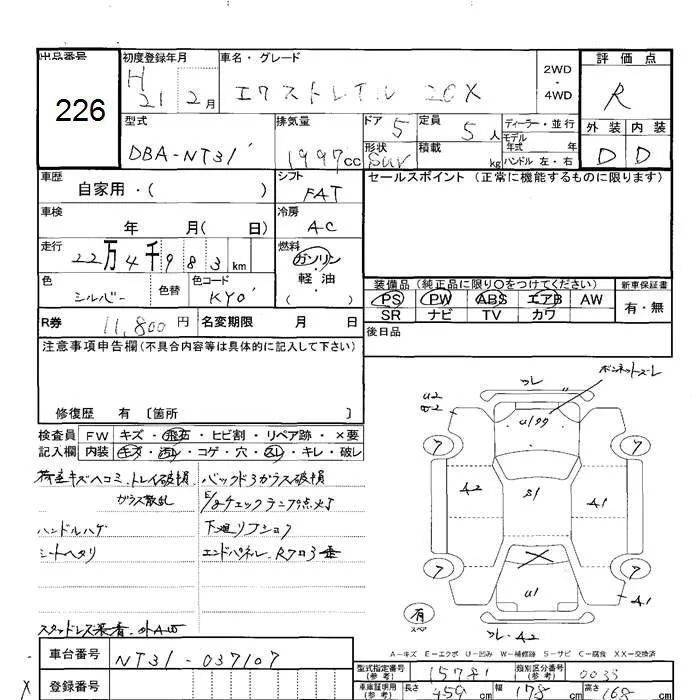 出品番号
226
初度登録年月
H 21 2月
車名・グレード
エクストレイル 20X
2WD
・
4WD
評価点
R
外装 内装
D D
型式
DBA-NT31
排気量
1997cc
ドア 5
定員 5人
形状 SUV
積載 kg
ディーラー・並行
モデル
年式 年
ハンドル 左・右
車歴
自家用・( )
シフト
FAT
セールスポイント (正常に機能するものに限ります)
車検
年 月( 日)
冷房
AC
走行
22万4千983km
燃料
ガソリン
・
軽・油
( )
色
シルバー
色替
色コード
KY0
装備品 (純正品に限り○をつけてください)
新車保証書
PS PW ABS エアB AW
有・無
SR ナビ TV カワ
R券 11,800円
名変期限 月 日
後日品
注意事項申告欄(不具合内容等は具体的に記入して下さい)
修復歴 有 〔箇所 〕
検査員 FW キズ・飛石・ヒビ割・リペア跡・×要
記入欄 内装 キズ・汚レ・コゲ・穴・スレ・キレ・破レ
荷室キズヘコミ、トレイ破損
ガラス散乱
ハンドルハゲ
シートヘタリ
スタッドレス装着、外AW
バックドアガラス破損
E/gチェックランプ点灯
下廻リ
エンドパネル、Rフロア
フレ
ボンネットズレ
U2
W2
U199
7
7
A2
S1
A1
7
7
U1
A1
有
スペア
フレ A2
A-キズ E-エクボ U-凹み W-補修跡 S-サビ C-腐食 XX-交換済
車台番号 NT31-037107
型式指定番号
(参考)
15781
類別区分番号
(参考)
0033
X
登録番号
車庫証明用
(参考)
長さ 459cm
幅 178cm
高さ 168cm